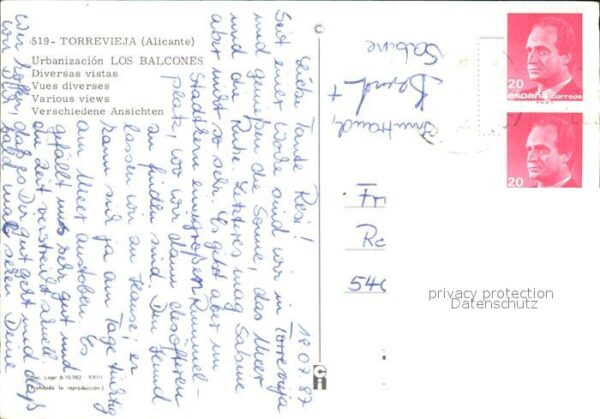 519- TORREVIEJA (Alicante)
Urbanización LOS BALCONES
Diversas vistas
Vues diverses
Various views
Verschiedene Ansichten
18.07.87
Liebe Tante Resi!
Seit einer Woche sind wir in Torrevieja
und genießen die Sonne, das Meer
und die Ruhe. Letzteres mag Sabine
aber nicht so sehr. Es gibt aber im
Stadtkern einen großen Rummel-
platz, wo wir dann des öfteren
zu finden sind. Den Hund
lassen wir zu Hause; er
kann sich ja am Tage richtig
am Meer austoben. Es
gefällt uns sehr gut und
die Zeit verstreicht schnell.
Wir hoffen, daß es Dir gut geht und daß
wir Dich bald mal sehen. Deine
Annetraud,
Bernd +
Sabine
20
España correos
20
Fr
Ro
540
privacy protection
Datenschutz
Dep. Legal B 10.982 - XXIII
(Prohibida la reproducción)